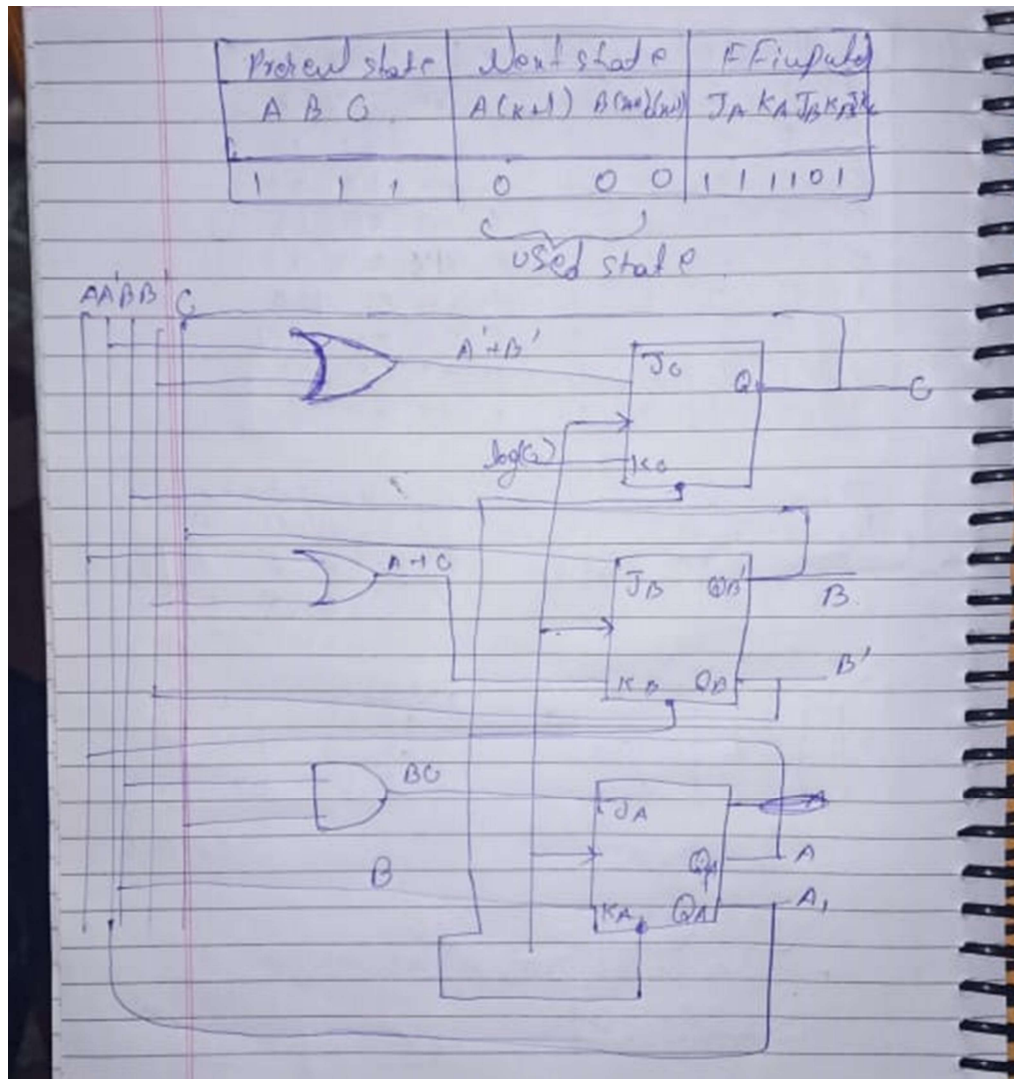 Present state Next state FF inputs
A B C A(k+1) B(k+1) (k+1) JA KA JB KB JC KC
1 1 1 0 0 0 1 1 1 1 0 1
used state
A A' B B' C
A'+B'
JC Q C
log(C)
KC
A+C
JB QB' B
KB QB B'
BC
JA A
QA A
B
KA QA A,